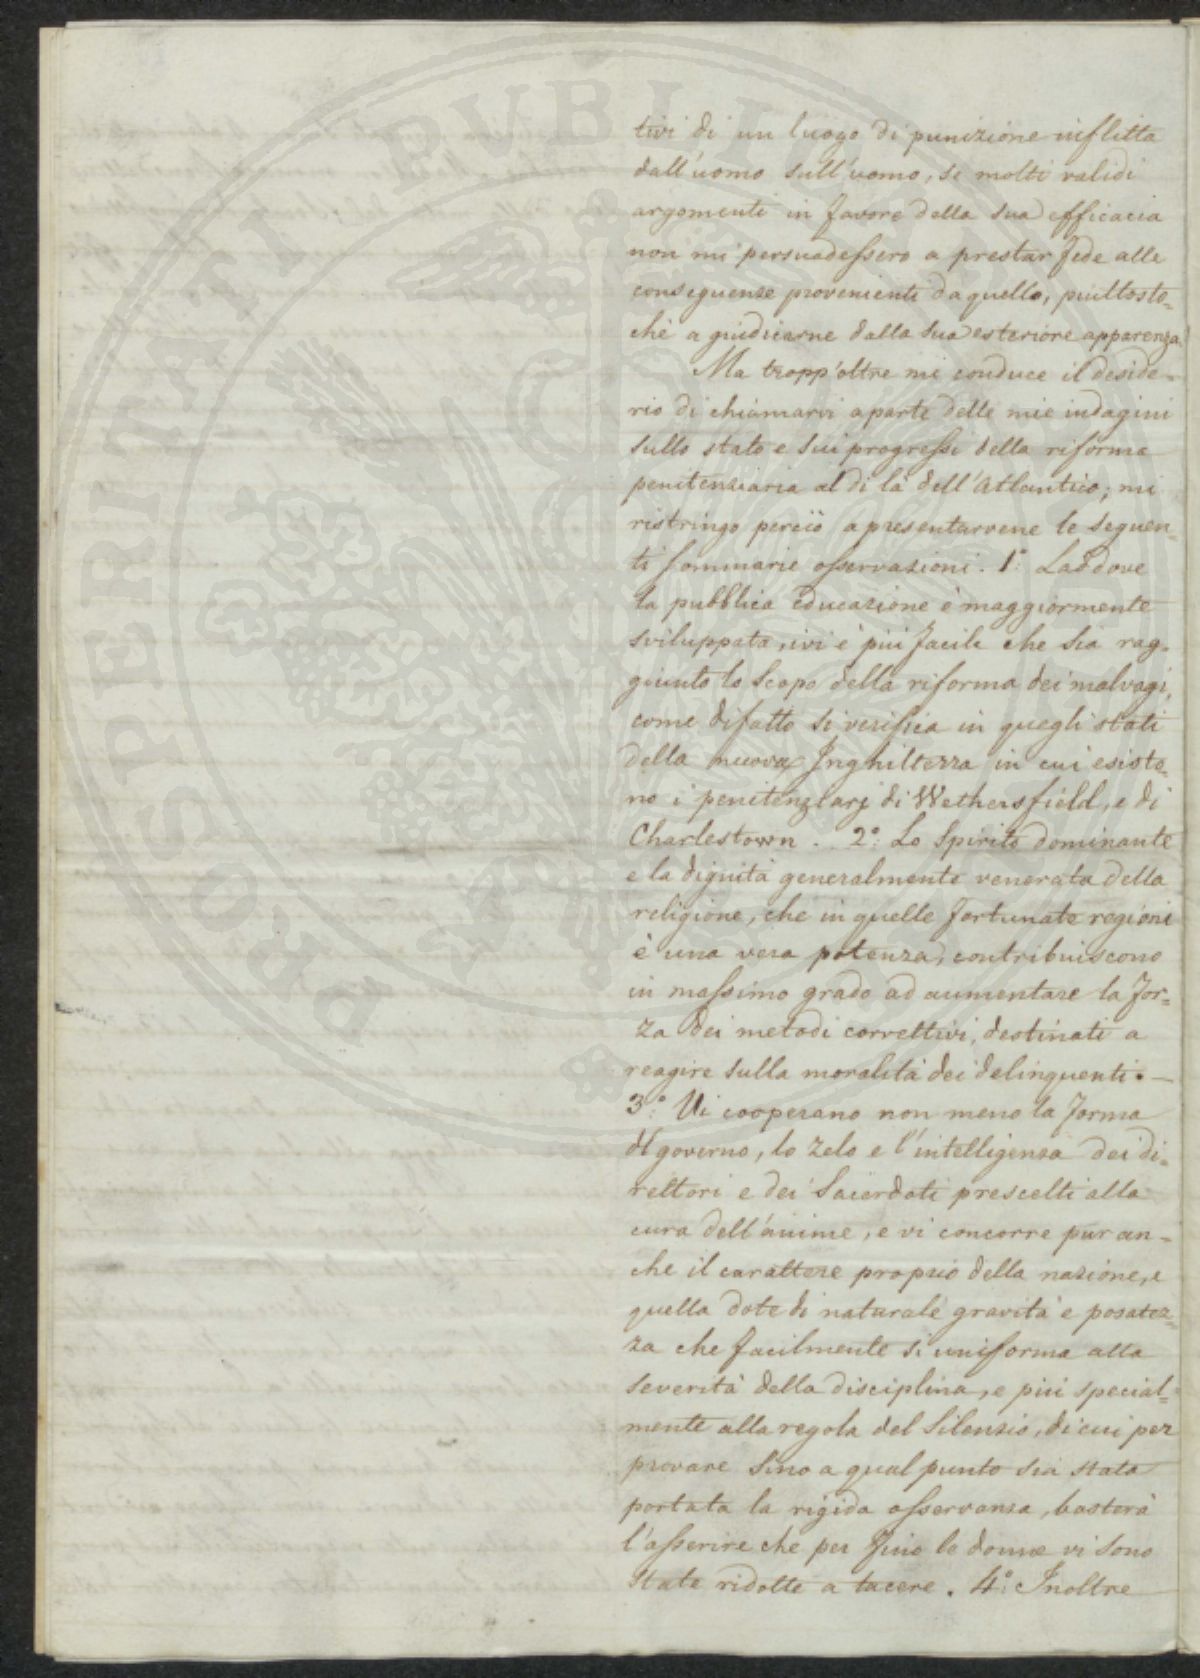 PROSPERITATI PUBLICAE
tivi di un luogo di punizione inflitta
dall'uomo sull'uomo, se molti validi
argomenti in favore della sua efficacia
non mi persuadessero a prestar fede alle
conseguenze provenienti da quello, piuttosto=
chè a giudicarne dalla sua esteriore apparenza.
Ma tropp'oltre mi conduce il deside=
rio di chiamarvi a parte delle mie indagini
sullo stato e sui progressi della riforma
penitenziaria al di là dell'Atlantico; mi
ristringo perciò a presentarvene le seguen=
ti sommarie osservazioni. 1.° Laddove
la pubblica educazione è maggiormente
sviluppata, ivi è più facile che sia rag=
giunto lo scopo della riforma dei malvagi,
come difatto si verifica in quegli stati
della nuova Inghilterra in cui esisto=
no i penitenziarj di Wethersfield, e di
Charlestown. . 2.° Lo Spirito dominante
e la dignità generalmente venerata della
religione, che in quelle fortunate regioni
è una vera potenza, contribuiscono
in massimo grado ad aumentare la for=
za dei metodi correttivi, destinati a
reagire sulla moralità dei delinquenti. —
3.° Vi cooperano non meno la forma
di governo, lo zelo e l'intelligenza dei di=
rettori e dei Sacerdoti prescelti alla
cura dell'anime, e vi concorre pur an=
che il carattere proprio della nazione, e
quella dote di naturale gravità e posatez=
za che facilmente si uniforma alla
severità della disciplina, e più special=
mente alla regola del Silenzio, di cui per
provare sino a qual punto sia stata
portata la rigida osservanza, basterà
l'asserire che per fino le donne vi sono
state ridotte a tacere. 4.° Inoltre